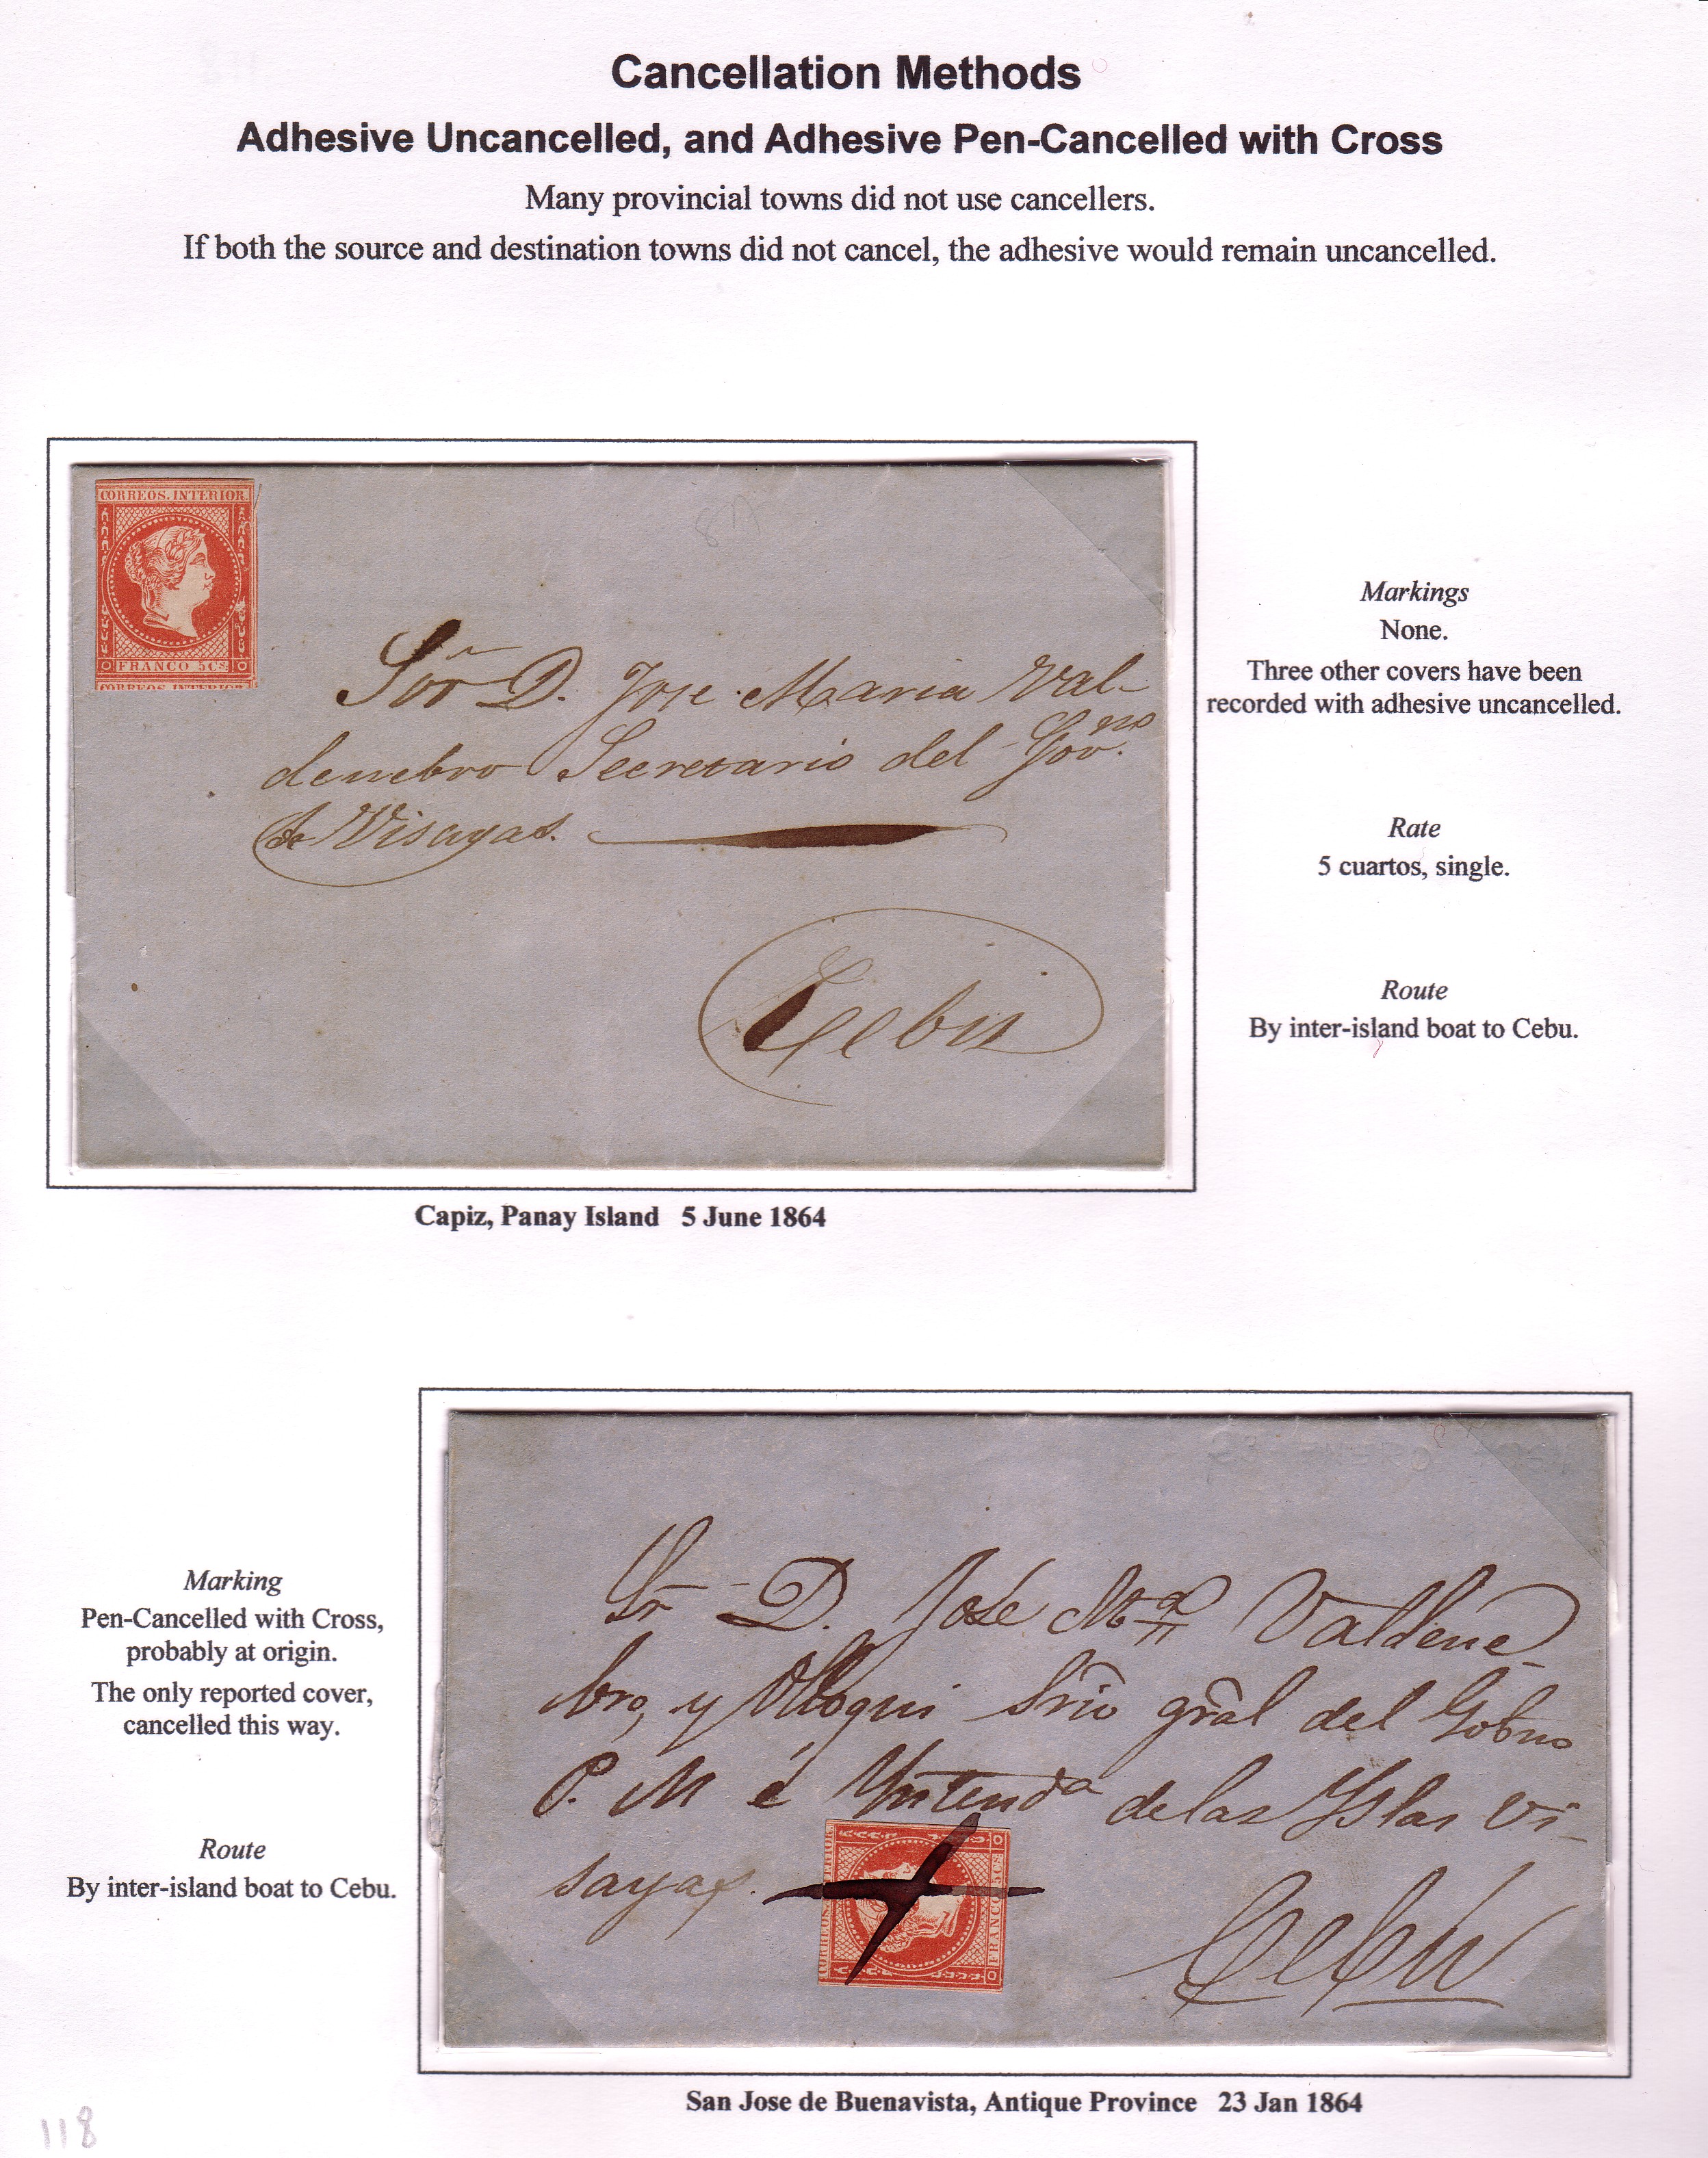 Cancellation Methods
Adhesive Uncancelled, and Adhesive Pen-Cancelled with Cross
Many provincial towns did not use cancellers.
If both the source and destination towns did not cancel, the adhesive would remain uncancelled.
CORREOS. INTERIOR.
FRANCO 5 CS.
CORREOS INTERIOR
Sor. D. Jose Maria Val-
denebro Secretario del Govno.
de Visayas.
Cebu
Markings
None.
Three other covers have been
recorded with adhesive uncancelled.
Rate
5 cuartos, single.
Route
By inter-island boat to Cebu.
Capiz, Panay Island 5 June 1864
Marking
Pen-Cancelled with Cross,
probably at origin.
The only reported cover,
cancelled this way.
Route
By inter-island boat to Cebu.
Sr D. José Ma Valdene-
bro, y Olloqui Srio gral del Gobno
P. M é Yntenda de las Yslas Vi-
sayas.
FRANCO 5 CS
Cebu
San Jose de Buenavista, Antique Province 23 Jan 1864
118